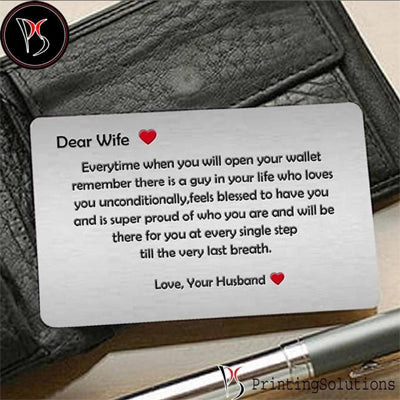 PS
Dear Wife
Everytime when you will open your wallet
remember there is a guy in your life who loves
you unconditionally,feels blessed to have you
and is super proud of who you are and will be
there for you at every single step
till the very last breath.
Love, Your Husband
PS PrintingSolutions